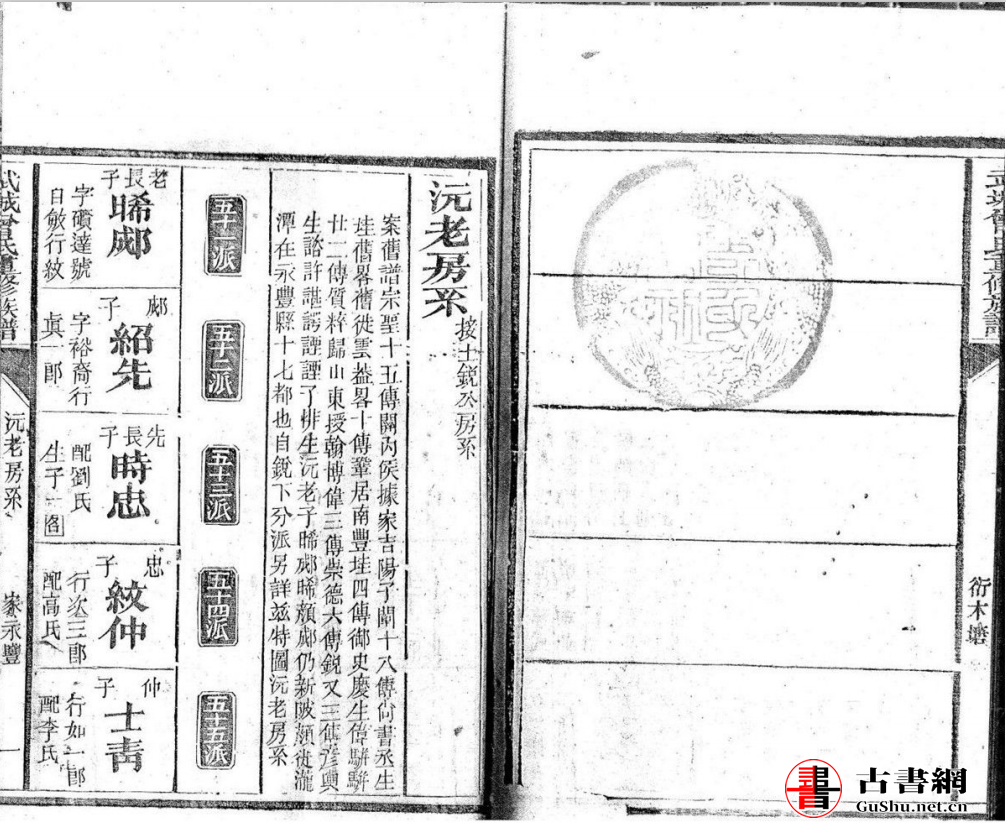 衍木塘
沅老房系
按士銳公房系
案舊譜宗聖十五傳關內侯據家吉陽子闡十八傳尚書丞生
珪舊畧舊徙雲蓋畧十傳鞏居南豐珪四傳御史慶生偉駢駢
廿二傳質粹歸山東授翰博偉三傳崇德六傳銳又三傳彥與
生諮許誰諤諲諲子俳生沅老子晞郕晞顏郕仍新陂顏徙瀧
潭在永豐縣十七都也自銳下分派另詳兹特圖沅老房系
五十一派
五十二派
五十三派
五十四派
五十五派
老長子
晞郕
字礩達號
自敏行紋
郕子
紹先
字裕裔行
真一郎
先長子
時忠
配劉氏
生子一
忠子
紋仲
行汝三郎
配高氏
仲子
士青
行如一郎
配李氏
武城曾氏重修族譜
沅老房系
永豐
一
書
古書網
GuShu.net.cn